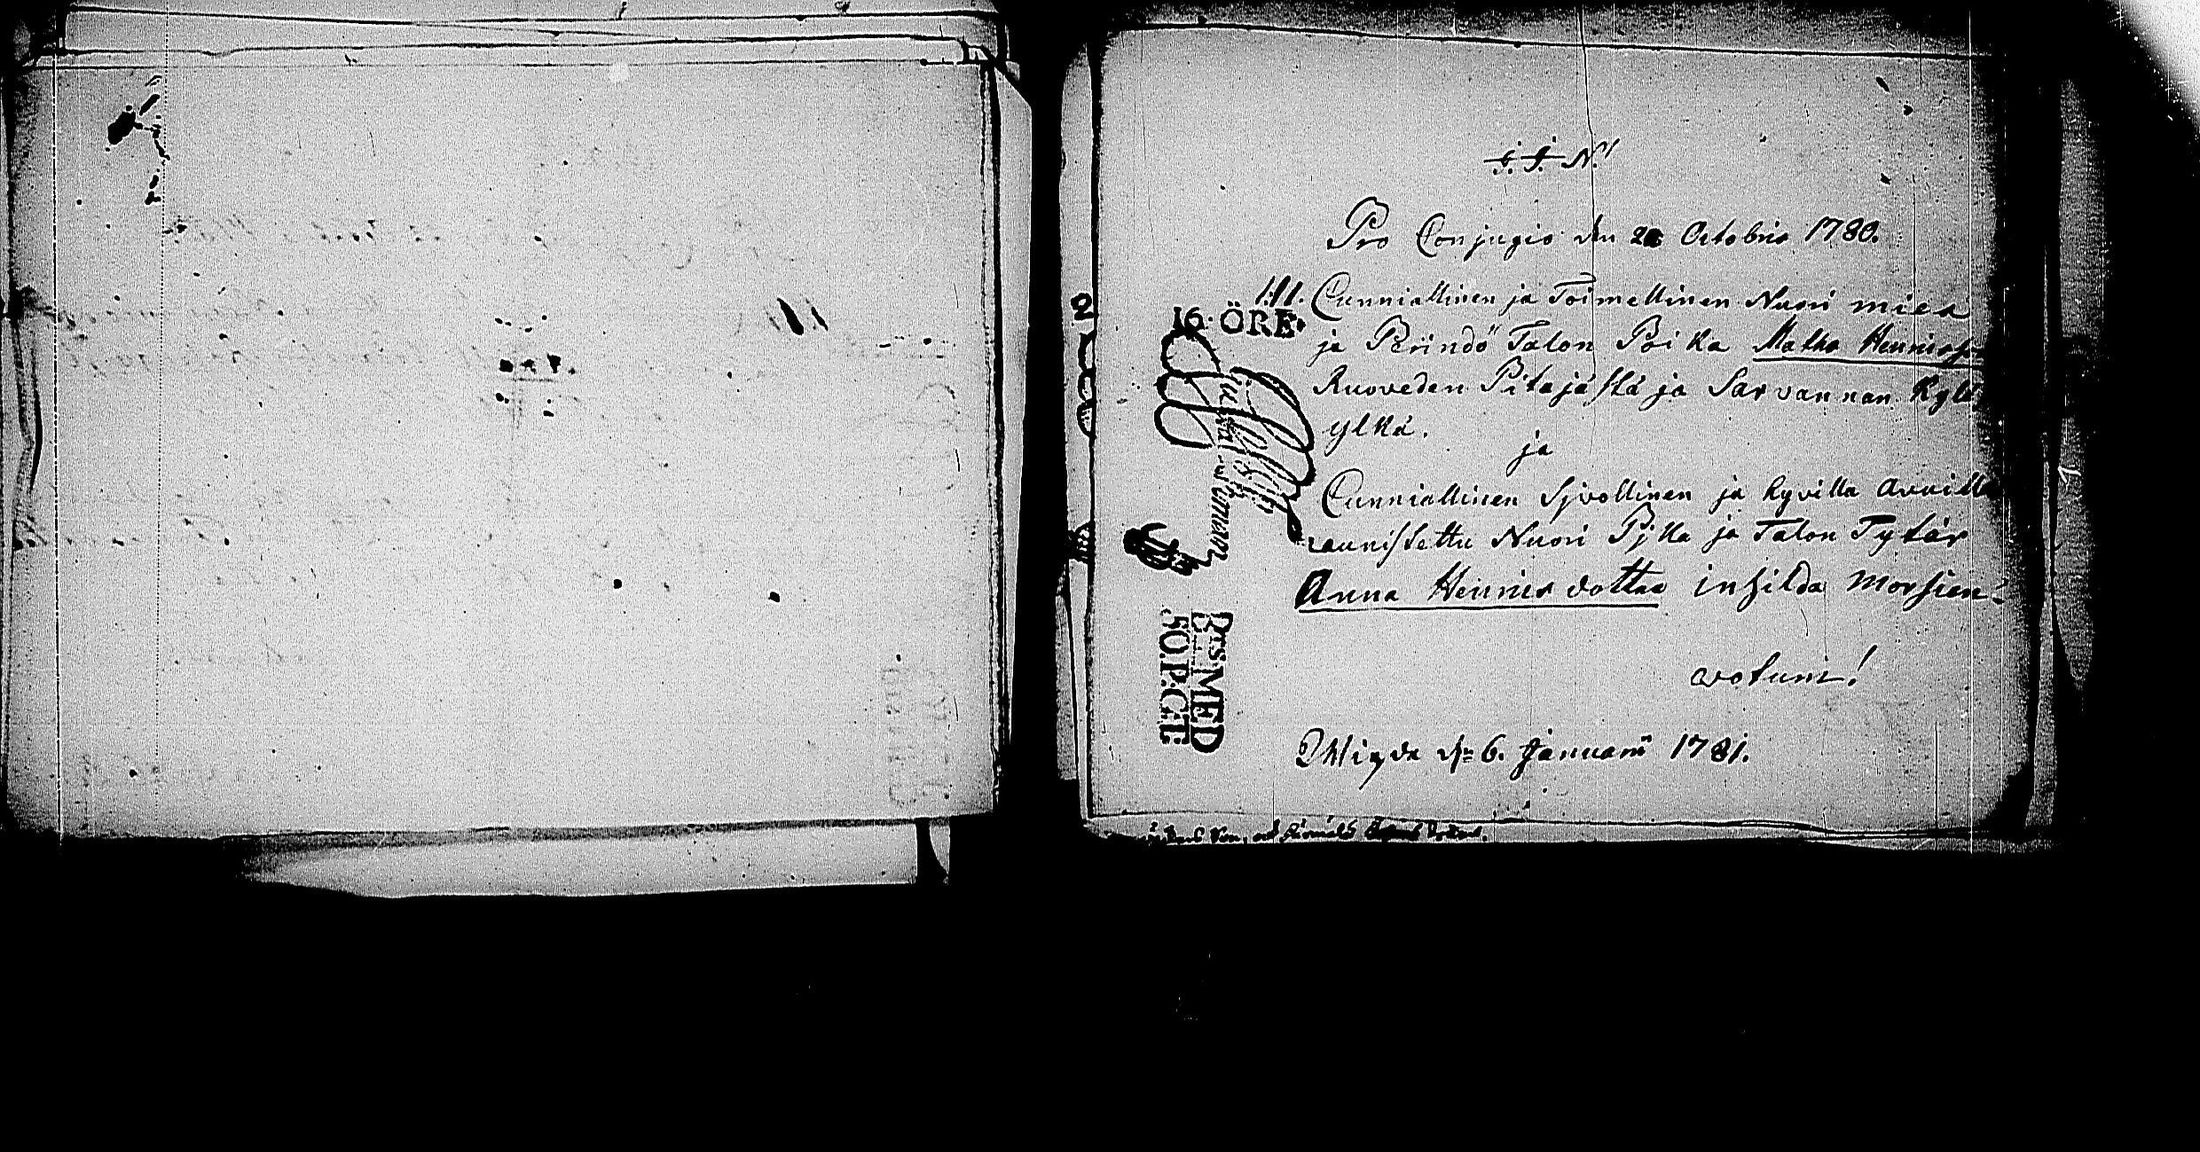 J. J. N.
Pro Conjugio den Octobris 1780.
1:11. Cunniallinen ja Toimellinen Nuori mies
16 ÖRE
ja Perindö Talon Poika Matho
Ruoveden Pitäjästä ja Sarvannan Kylä
ylkä.
ja
Cunniallinen Sjvollinen ja hyvilla avuilla
caunistettu Nuori Pjka ja Talon Tytär
Anna Henricsdotter in hilda Morsien
votum!
den 6. Januarii 1781.
BrtsMED
50.P:C:T